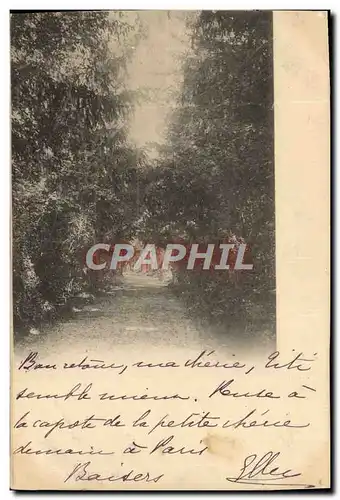 CPARPHIL
Bon retour, ma chérie, Titi
semble mieux. Pense à
la capote de la petite chérie
demain à Paris
Baisers